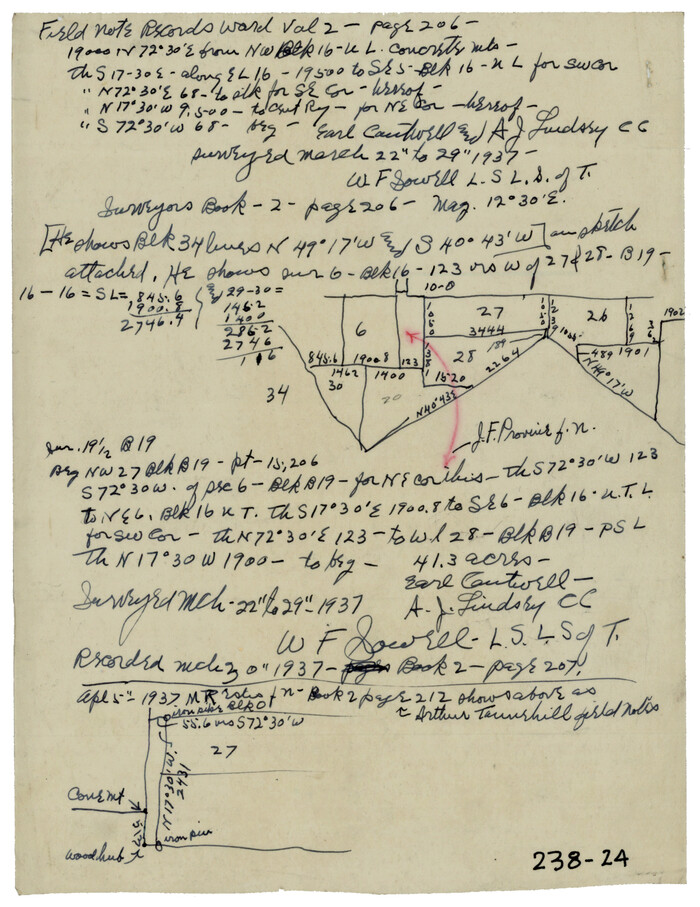 Field Note Records Ward Vol 2 - page 206 -
19000 N 72°30'E from NW Blk 16 - U L. Concrete mts -
th S 17-30 E - along E L 16 - 19500 to SE 5 - Blk 16 - U L for SW cor
" N 72°30'E 68 - to stk for SE Cor - hereof -
" N 17°30'W 9,500 - to Cent Ry - for NE Cor - hereof -
" S 72°30'W 68 - beg - Earl Cautwell and A J Lindsey C C
Surveyed march 22" to 29" 1937 -
W F Sowell L. S L. S. of T.
Surveyors Book - 2 - page 206 - Mag. 12°30'E.
[He shows Blk 34 lines N 49°17'W and S 40°43'W] on sketch
attached. He shows sur 6 - Blk 16 - 123 vrs W of 27 & 28 - B19 -
16 - 16 = SL = 845.6
1900.8
2746.4
29-30 =
1462
1400
2862
2746
116
10-0
6
27
26
1902
1050
3444
1055
1269
36
189
845.6
1900.8
123
28
1381
2264
489
1901
N 49°17'W
1462
30
1400
1520
20
34
N 40°43'E
J. F. Province f. n.
Sur. 19 1/2 B19
Beg NW 27 Blk B19 - pt - 15,206
S 72°30 W. of sec 6 - Blk B19 - for NE cor this - th S 72°30'W 123
to NE 6, Blk 16 U T. th S 17°30'E 1900.8 to SE 6 - Blk 16 - U. T. L.
for SW Cor - th N 72°30'E 123 - to W L 28 - Blk B19 - PS L
th N 17°30 W 1900 - to beg - 41.3 acres -
Earl Cautwell -
Surveyed Mch - 22" to 29" - 1937 A. J. Lindsey C C
W F Sowell - L. S. L. S of T.
Recorded mch 30" 1937 - Book 2 - page 207.
Apl 5" 1937 f n - Book 2 page 212 shows above as
Arthur Tunnehill field notes
iron pipe Blk
55.6 vrs S 72°30'W
27
N 17°30'W
1342
Conc Mt
517
iron pin
wood hub
238-24